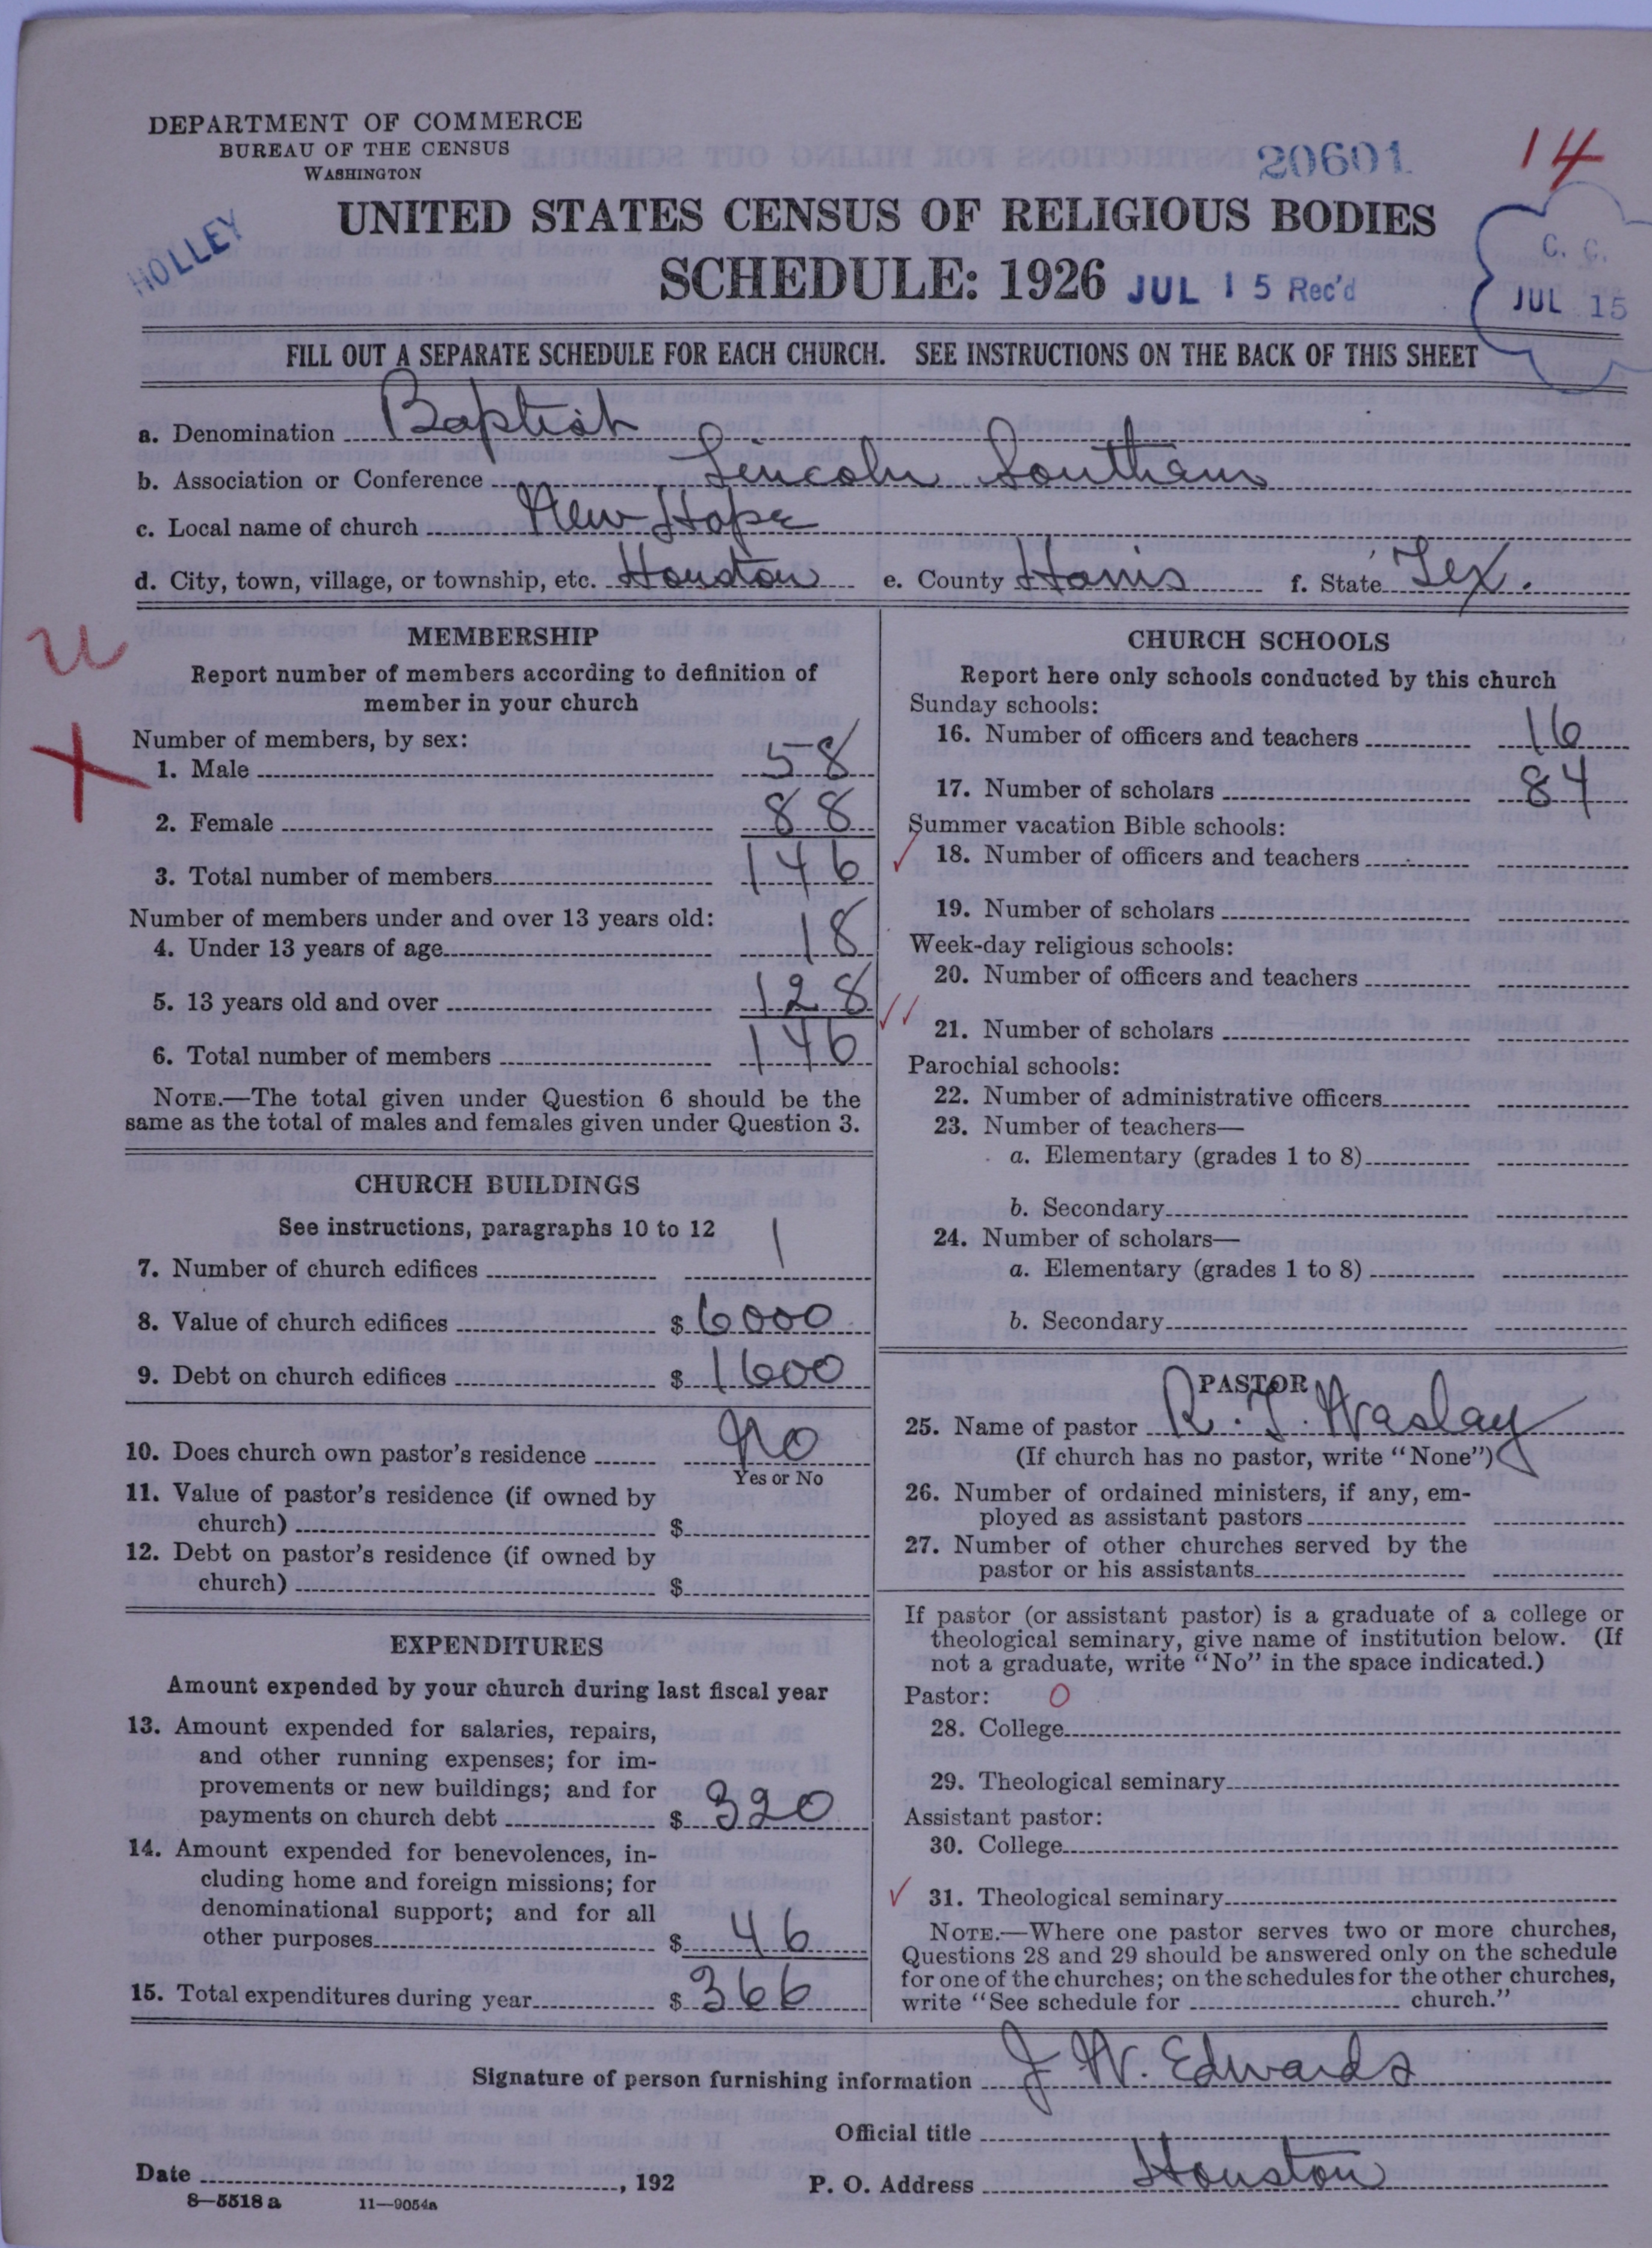 DEPARTMENT OF COMMERCE
BUREAU OF THE CENSUS
WASHINGTON
20601
14
HOLLEY
UNITED STATES CENSUS OF RELIGIOUS BODIES
SCHEDULE: 1926
JUL 15 Rec'd
C. C.
JUL 15
FILL OUT A SEPARATE SCHEDULE FOR EACH CHURCH. SEE INSTRUCTIONS ON THE BACK OF THIS SHEET
a. Denomination Baptist
b. Association or Conference Lincoln Southern
c. Local name of church New Hope
d. City, town, village, or township, etc. Houston e. County Harris f. State Tex.
MEMBERSHIP
Report number of members according to definition of
member in your church
Number of members, by sex:
1. Male 58
2. Female 88
3. Total number of members 146
Number of members under and over 13 years old:
4. Under 13 years of age 18
5. 13 years old and over 128
6. Total number of members 146
NOTE.—The total given under Question 6 should be the
same as the total of males and females given under Question 3.
CHURCH BUILDINGS
See instructions, paragraphs 10 to 12
7. Number of church edifices 1
8. Value of church edifices $ 6000
9. Debt on church edifices $ 1600
10. Does church own pastor's residence No
Yes or No
11. Value of pastor's residence (if owned by
church) $
12. Debt on pastor's residence (if owned by
church) $
EXPENDITURES
Amount expended by your church during last fiscal year
13. Amount expended for salaries, repairs,
and other running expenses; for im-
provements or new buildings; and for
payments on church debt $ 320
14. Amount expended for benevolences, in-
cluding home and foreign missions; for
denominational support; and for all
other purposes $ 46
15. Total expenditures during year $ 366
CHURCH SCHOOLS
Report here only schools conducted by this church
Sunday schools:
16. Number of officers and teachers 16
17. Number of scholars 84
Summer vacation Bible schools:
18. Number of officers and teachers
19. Number of scholars
Week-day religious schools:
20. Number of officers and teachers
21. Number of scholars
Parochial schools:
22. Number of administrative officers
23. Number of teachers—
a. Elementary (grades 1 to 8)
b. Secondary
24. Number of scholars—
a. Elementary (grades 1 to 8)
b. Secondary
PASTOR
25. Name of pastor R. T.
(If church has no pastor, write "None")
26. Number of ordained ministers, if any, em-
ployed as assistant pastors
27. Number of other churches served by the
pastor or his assistants
If pastor (or assistant pastor) is a graduate of a college or
theological seminary, give name of institution below. (If
not a graduate, write "No" in the space indicated.)
Pastor: 0
28. College
29. Theological seminary
Assistant pastor:
30. College
31. Theological seminary
NOTE.—Where one pastor serves two or more churches,
Questions 28 and 29 should be answered only on the schedule
for one of the churches; on the schedules for the other churches,
write "See schedule for church."
Signature of person furnishing information J W. Edwards
Official title
Date , 192 P. O. Address Houston
8—5518 a 11—9054a